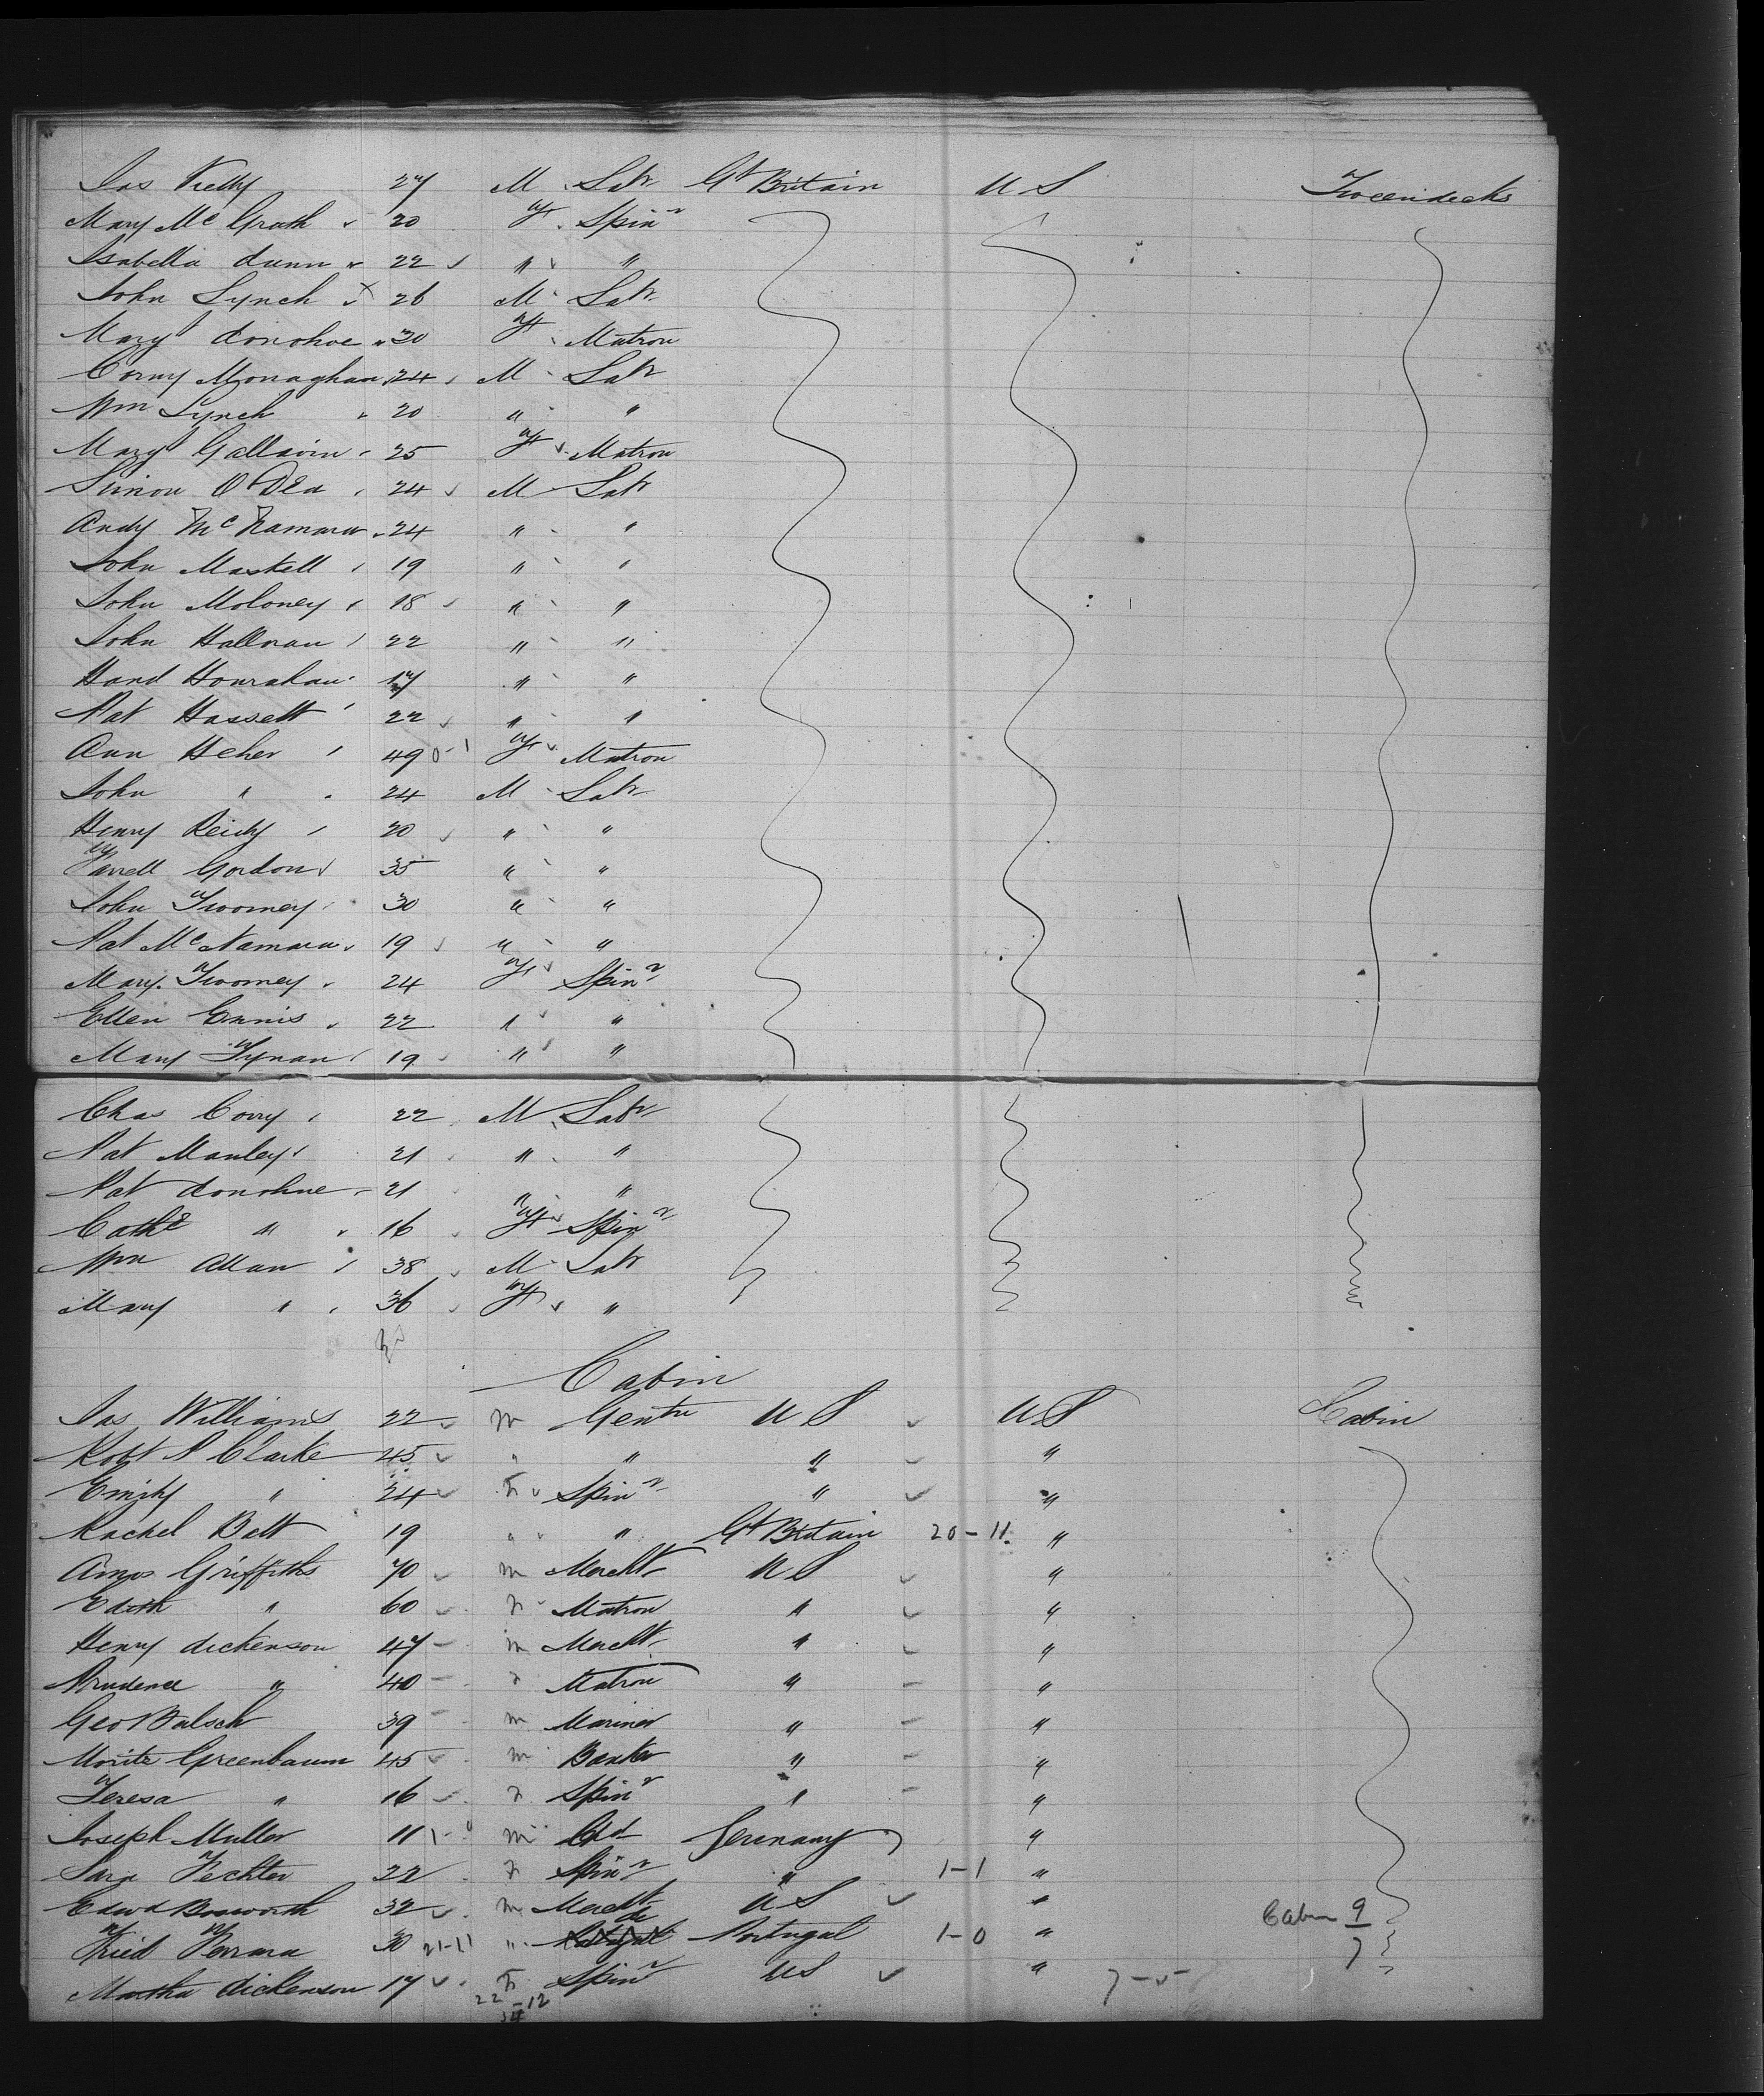 Jas Kelly 27 M Labr Gt Britain U S Tweendecks
Mary Mc Grath 20 F Spinr
Isabella Dunn 22 " "
John Lynch 26 M Labr
Mary Donohoe 30 F Matron
Corny Monaghan 24 M Labr
Wm Lynch 20 " "
Mary Gallavin 25 F Matron
Simon O'Dea 24 M Labr
Andy McNamara 24 " "
John Maskell 19 " "
John Moloney 18 " "
John Hallnan 22 " "
Hourahan 17 " "
Pat Hassett 22 " "
Ann Heher 49 0-1 F Matron
John " 24 M Labr
Henry Reidy 20 " "
Farrell Gordon 35 " "
John Twomey 30 " "
Pat McNamara 19 " "
Mary Twomey 24 F Spinr
Ellen Ennis 22 " "
Mary Tynan 19 " "
Chas Corry 22 M Labr
Pat Manley 21 " "
Pat Donohue 21 " "
Cathe " 16 F Spinr
Wm Allan 38 M Labr
Mary " 36 F "
Cabin
Jas Williams 22 M Gentn U S U S Cabin
Robt P Clarke 45 " " " "
Emily " 24 F Spinr " "
Rachel Batt 19 " " Gt Britain 20-11 "
Amos Griffiths 70 M Mercht U S "
Edith " 60 F Matron " "
Henry Dickenson 47 M Mercht " "
Prudence " 40 F Matron " "
Geo Balsch 39 M Mariner " "
Moritz Greenbaum 45 M Banker " "
Teresa " 16 F Spinr " "
Joseph Muller 11 M Cld Germany "
Sara Fechter 22 F Spinr " 1-1 "
Edwd Bosworth 32 M Mercht U S "
Fried Ferrara 30 21-11 " do Portugal 1-0 " Cabin 9
7
Martha Dickenson 17 F Spinr U S "
22-12
34